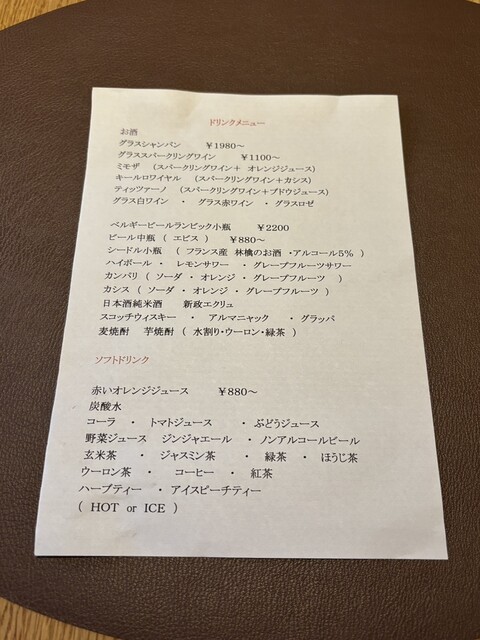 ドリンクメニュー
お酒
グラスシャンパン ￥1980～
グラススパークリングワイン ￥1100～
ミモザ （スパークリングワイン＋ オレンジジュース）
キールロワイヤル （スパークリングワイン＋カシス）
ティッツァーノ （スパークリングワイン＋ブドウジュース）
グラス白ワイン ・ グラス赤ワイン ・ グラスロゼ
ベルギービールランビック小瓶 ￥2200
ビール中瓶（ エビス ） ￥880～
シードル小瓶 （ フランス産 林檎のお酒 ・アルコール5％ ）
ハイボール ・ レモンサワー ・ グレープフルーツサワー
カンパリ（ ソーダ ・ オレンジ ・ グレープフルーツ ）
カシス（ ソーダ ・ オレンジ ・ グレープフルーツ ）
日本酒純米酒 新政エクリュ
スコッチウィスキー ・ アルマニャック ・ グラッパ
麦焼酎 芋焼酎（ 水割り・ウーロン・緑茶 ）
ソフトドリンク
赤いオレンジジュース ￥880～
炭酸水
コーラ ・ トマトジュース ・ ぶどうジュース
野菜ジュース ジンジャエール ・ ノンアルコールビール
玄米茶 ・ ジャスミン茶 ・ 緑茶 ・ ほうじ茶
ウーロン茶 ・ コーヒー ・ 紅茶
ハーブティー ・ アイスピーチティー
（ HOT or ICE ）